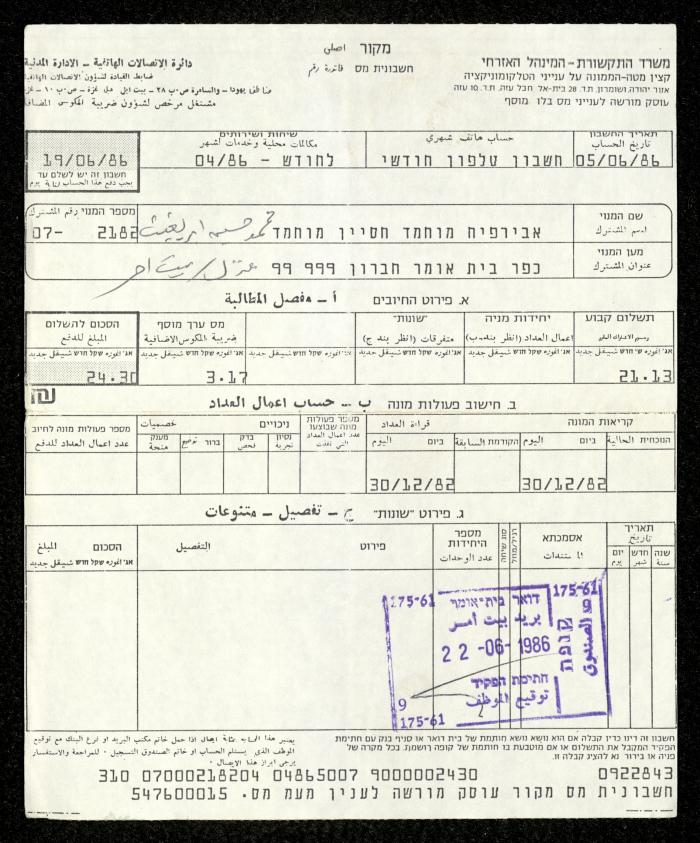 מקור اصلي
משרד התקשורת - המינהל האזרחי
קצין מטה-הממונה על ענייני הטלקומוניקציה
אזור יהודה ושומרון, ת.ד. 28 בית-אל חבל עזה, ת.ד. 10 עזה
עוסק מורשה לענייני מס בלו מוסף
חשבונית מס فاتورة رقم
دائرة الاتصالات الهاتفية - الادارة المدنية
ضابط القيادة لشؤون الاتصالات الهاتفية
مشتغل مرخص لشؤون ضريبة المكوس المضاف
תאריך החשבון
تاريخ الحساب
05/06/86
حساب هاتف شهري
חשבון טלפון חודשי
שיחות ושירותים
مكالمات محلية وخدمات لشهر
לחודש - 04/86
19/06/86
חשבון זה יש לשלם עד
يجب دفع هذا الحساب لغاية يوم
שם המנוי
اسم المشترك
אבירפיח מוחמד חסיין מוחמד
מספר המנוי رقم المشترك
07- 2182
מען המנוי
عنوان المشترك
כפר בית אומר חברון 999 99
א. פירוט החיובים أ - مفصل المطالبة
תשלום קבוע
رسم الاشتراك المقرر
אג' اغورة שקל חדש شيقل جديد
21.13
יחידות מניה
اعمال العداد (انظر بند ب)
אג' اغورة שקל חדש شيقل جديد
"שונות"
متفرقات (انظر بند ج)
אג' اغورة שקל חדש شيقل جديد
מס ערך מוסף
ضريبة المكوس الاضافية
אג' اغورة שקל חדש شيقل جديد
3.17
הסכום לתשלום
المبلغ للدفع
אג' اغورة שקל חדש شيقل جديد
24.30
ב. חישוב פעולות מונה ب - حساب اعمال العداد
קריאות המונה قراءة العداد
הנוכחית الحالية ביום اليوم
הקודמת السابقة ביום اليوم
30/12/82 30/12/82
מספר פעולות מונה שבוצעו
عدد اعمال العداد التي نفذت
ניכויים خصميات
נסיון تجربة
בדק فحص
ברור توضيح
מענק منحة
מספר פעולות מונה לחיוב
عدد اعمال العداد للدفع
ג. פירוט "שונות" ج - تفصيل - متنوعات
תאריך تاريخ
שנה سنة חדש شهر יום يوم
אסמכתא
المستندات
סוג שיחה
מספר היחידות
عدد الوحدات
פירוט التفصيل
הסכום المبلغ
אג' اغورة שקל חדש شيقل جديد
175-61 175-61
דואר בית-אומר
بريد بيت أمر
22-06-1986
קופה الصندوق
חתימת הפקיד
توقيع الموظف
9
175-61
חשבון זה דינו כדין קבלה אם הוא נושא חותמת של בית דואר או סניף בנק עם חתימת
הפקיד המקבל את התשלום או אם מוטבעת בו חותמת של קופה רושמת. בכל מקרה של
פניה או בירור נא להציג קבלה זו.
يعتبر هذا الحساب بمثابة ايصال اذا حمل خاتم مكتب البريد او فرع البنك مع توقيع
الموظف الذي يستلم الحساب او خاتم الصندوق التسجيل. للمراجعة والاستفسار
يرجى ابراز هذا الايصال.
310 07000218204 04865007 9000002430 0922843
חשבונית מס מקור עוסק מורשה לענין מעמ מס. 547600015